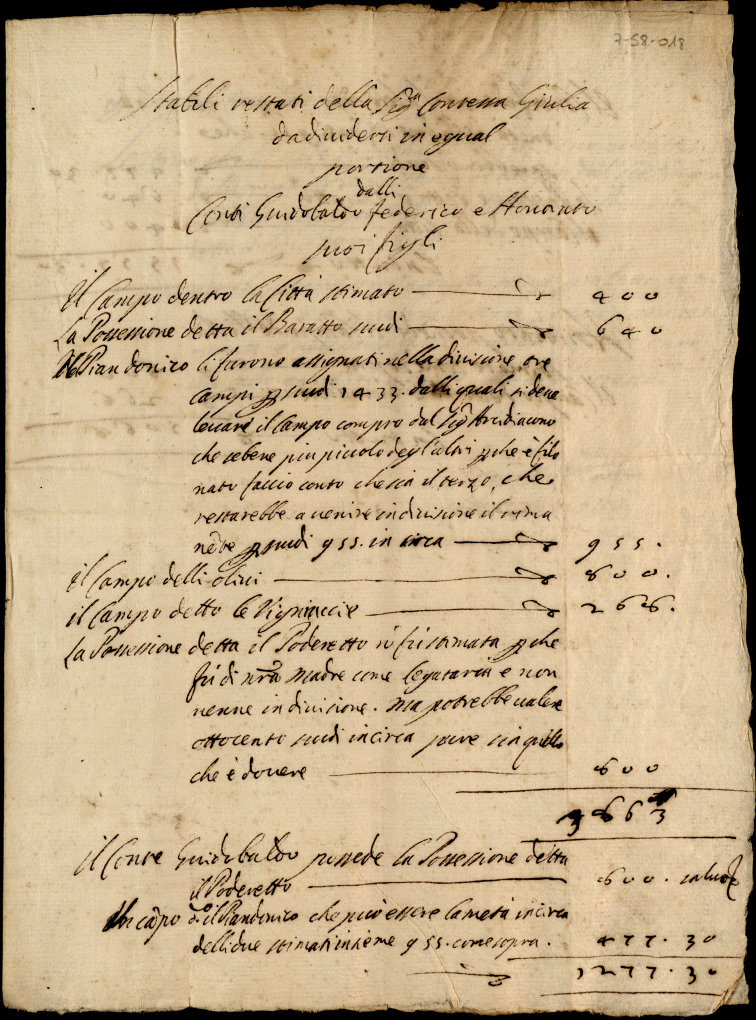 7-58-018
Stabili restati della Sig.ra Contessa Giulia
da dividersi in egual
portione
dalli
Conti Guidobaldo Federico e Honorato
suoi figli
Il Campo dentro la Città stimato 400
La Possessione detta il Baratto scudi 640
Il Piandonico li furono assignati nella divisione tre
campi p scudi 1433. dalli quali si deve
levare il Campo compro dal Sig.r Arcidiacono
che sebene piu piccolo degl'altri p che è filo
nato faccio conto che sia il terzo, che
restarebbe a venire in divisione il rima
nẽte p scudi 955. in circa 955.
il Campo delli olivi 800.
il Campo detto le Vignaccie 268.
La Possessione detta il Poderetto nõ fù stimata p che
fù di nrã Madre come legataria e non
venne in divisione. ma potrebbe valere
ottocento scudi in circa pure sia quello
che è dovere 800
3863
il Conte Guidobaldo possede la Possessione detta
il Poderetto 800. salvo
Un cãpo d.o il Piandonico che può essere la metà in circa
delli due stimati insieme 955. come sopra. 477.30
1277.30